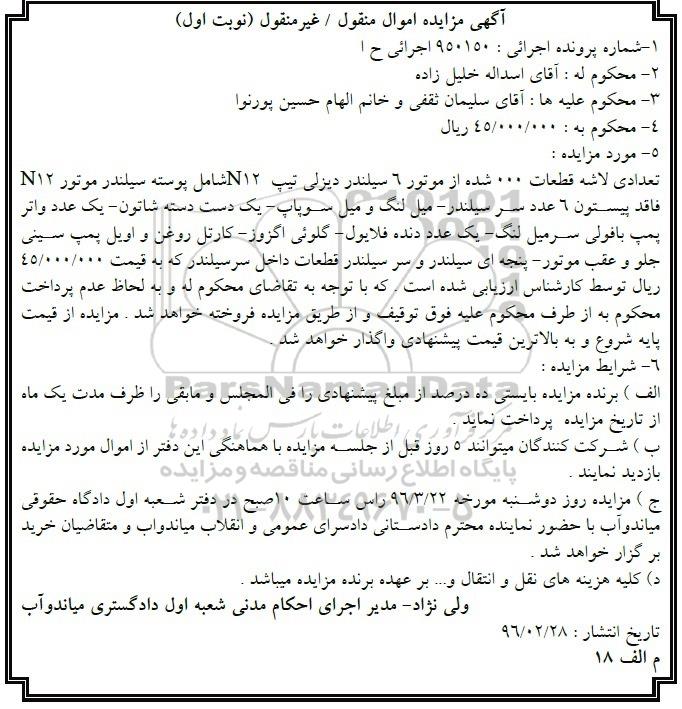 آگهی مزایده اموال منقول / غیرمنقول (نوبت اول)
۱-شماره پرونده اجرائی : ۹۵۰۱۵۰ اجرائی ح ا
۲- محکوم له : آقای اسداله خلیل زاده
۳- محکوم علیه ها : آقای سلیمان ثقفی و خانم الهام حسین پورنوا
۴- محکوم به : ۴۵/۰۰۰/۰۰۰ ریال
۵- مورد مزایده :
تعدادی لاشه قطعات ۰۰۰ شده از موتور ۶ سیلندر دیزلی تیپ N۱۲شامل پوسته سیلندر موتور N۱۲
فاقد پیستون ۶ عدد سر سیلندر- میل لنگ و میل سوپاپ- یک دست دسته شاتون- یک عدد واتر
پمپ بافولی سرمیل لنگ- یک عدد دنده فلایول- گلوئی اگزوز- کارتل روغن و اویل پمپ سینی
جلو و عقب موتور- پنجه ای سیلندر و سر سیلندر قطعات داخل سرسیلندر که به قیمت ۴۵/۰۰۰/۰۰۰
ریال توسط کارشناس ارزیابی شده است . که با توجه به تقاضای محکوم له و به لحاظ عدم پرداخت
محکوم به از طرف محکوم علیه فوق توقیف و از طریق مزایده فروخته خواهد شد . مزایده از قیمت
پایه شروع و به بالاترین قیمت پیشنهادی واگذار خواهد شد .
۶- شرایط مزایده :
الف ) برنده مزایده بایستی ده درصد از مبلغ پیشنهادی را فی المجلس و مابقی را ظرف مدت یک ماه
از تاریخ مزایده پرداخت نماید .
ب ) شرکت کنندگان میتوانند ۵ روز قبل از جلسه مزایده با هماهنگی این دفتر از اموال مورد مزایده
بازدید نمایند .
ج ) مزایده روز دوشنبه مورخه ۹۶/۳/۲۲ راس ساعت ۱۰صبح در دفتر شعبه اول دادگاه حقوقی
میاندوآب با حضور نماینده محترم دادستانی دادسرای عمومی و انقلاب میاندواب و متقاضیان خرید
بر گزار خواهد شد .
د) کلیه هزینه های نقل و انتقال و... بر عهده برنده مزایده میباشد .
ولی نژاد- مدیر اجرای احکام مدنی شعبه اول دادگستری میاندوآب
تاریخ انتشار : ۹۶/۰۲/۲۸
م الف ۱۸
ParsNamadData
مرکز فرآوری اطلاعات پارس نماد داده ها
پایگاه اطلاع رسانی مناقصه و مزایده
۰۲۱-۸۸۳۴۹۶۷۰-۵